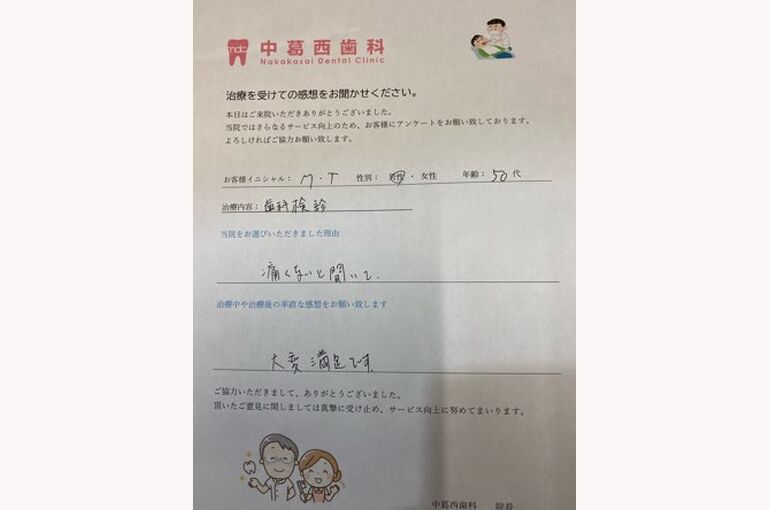 mdc 中葛西歯科
Nakakasai Dental Clinic
治療を受けての感想をお聞かせください。
本日はご来院いただきありがとうございました。
当院ではさらなるサービス向上のため、お客様にアンケートをお願い致しております。
よろしければご協力お願い致します。
お客様イニシャル： M・T 性別： 男性 ・ 女性 年齢： 50 代
治療内容： 歯科検診
当院をお選びいただきました理由
痛くないと聞いて。
治療中や治療後の率直な感想をお願い致します
大変満足です
ご協力いただきまして、ありがとうございました。
頂いたご意見に関しましては真摯に受け止め、サービス向上に努めてまいります。
中葛西歯科 院長